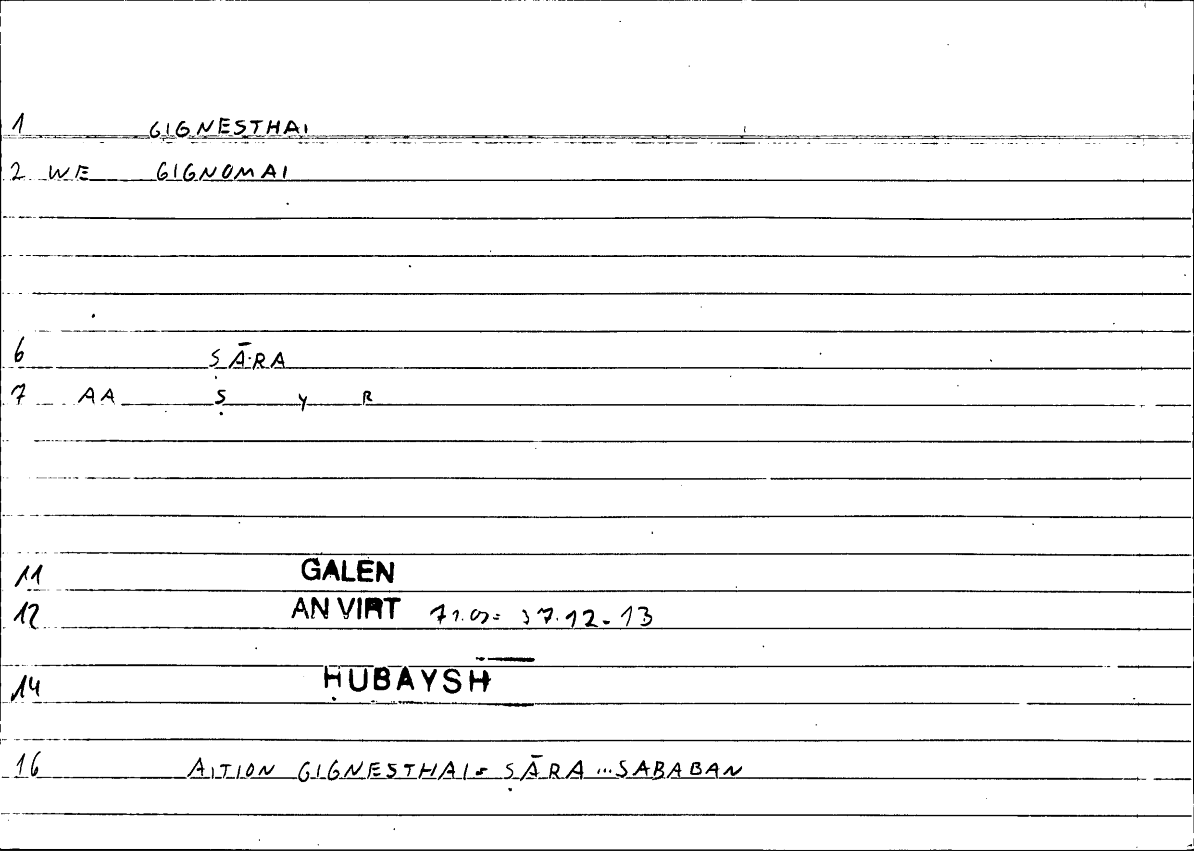 1 GIGNESTHAI
2 WE GIGNOMAI
6 ṢĀRA
7 AA Ṣ Y R
11 GALEN
12 AN VIRT 37.12-13
14 ḤUBAYSH
16 AITION GIGNESTHAI = ṢĀRA ... SABABAN